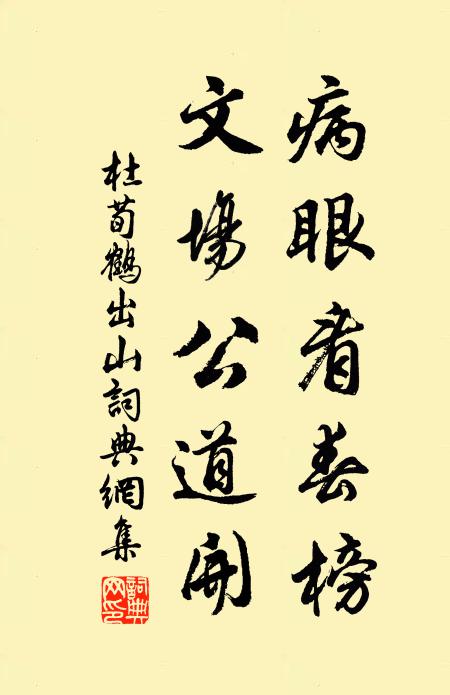 病眼看春榜
文場公道開
杜荀鶴出山詞典網集
詞典網印